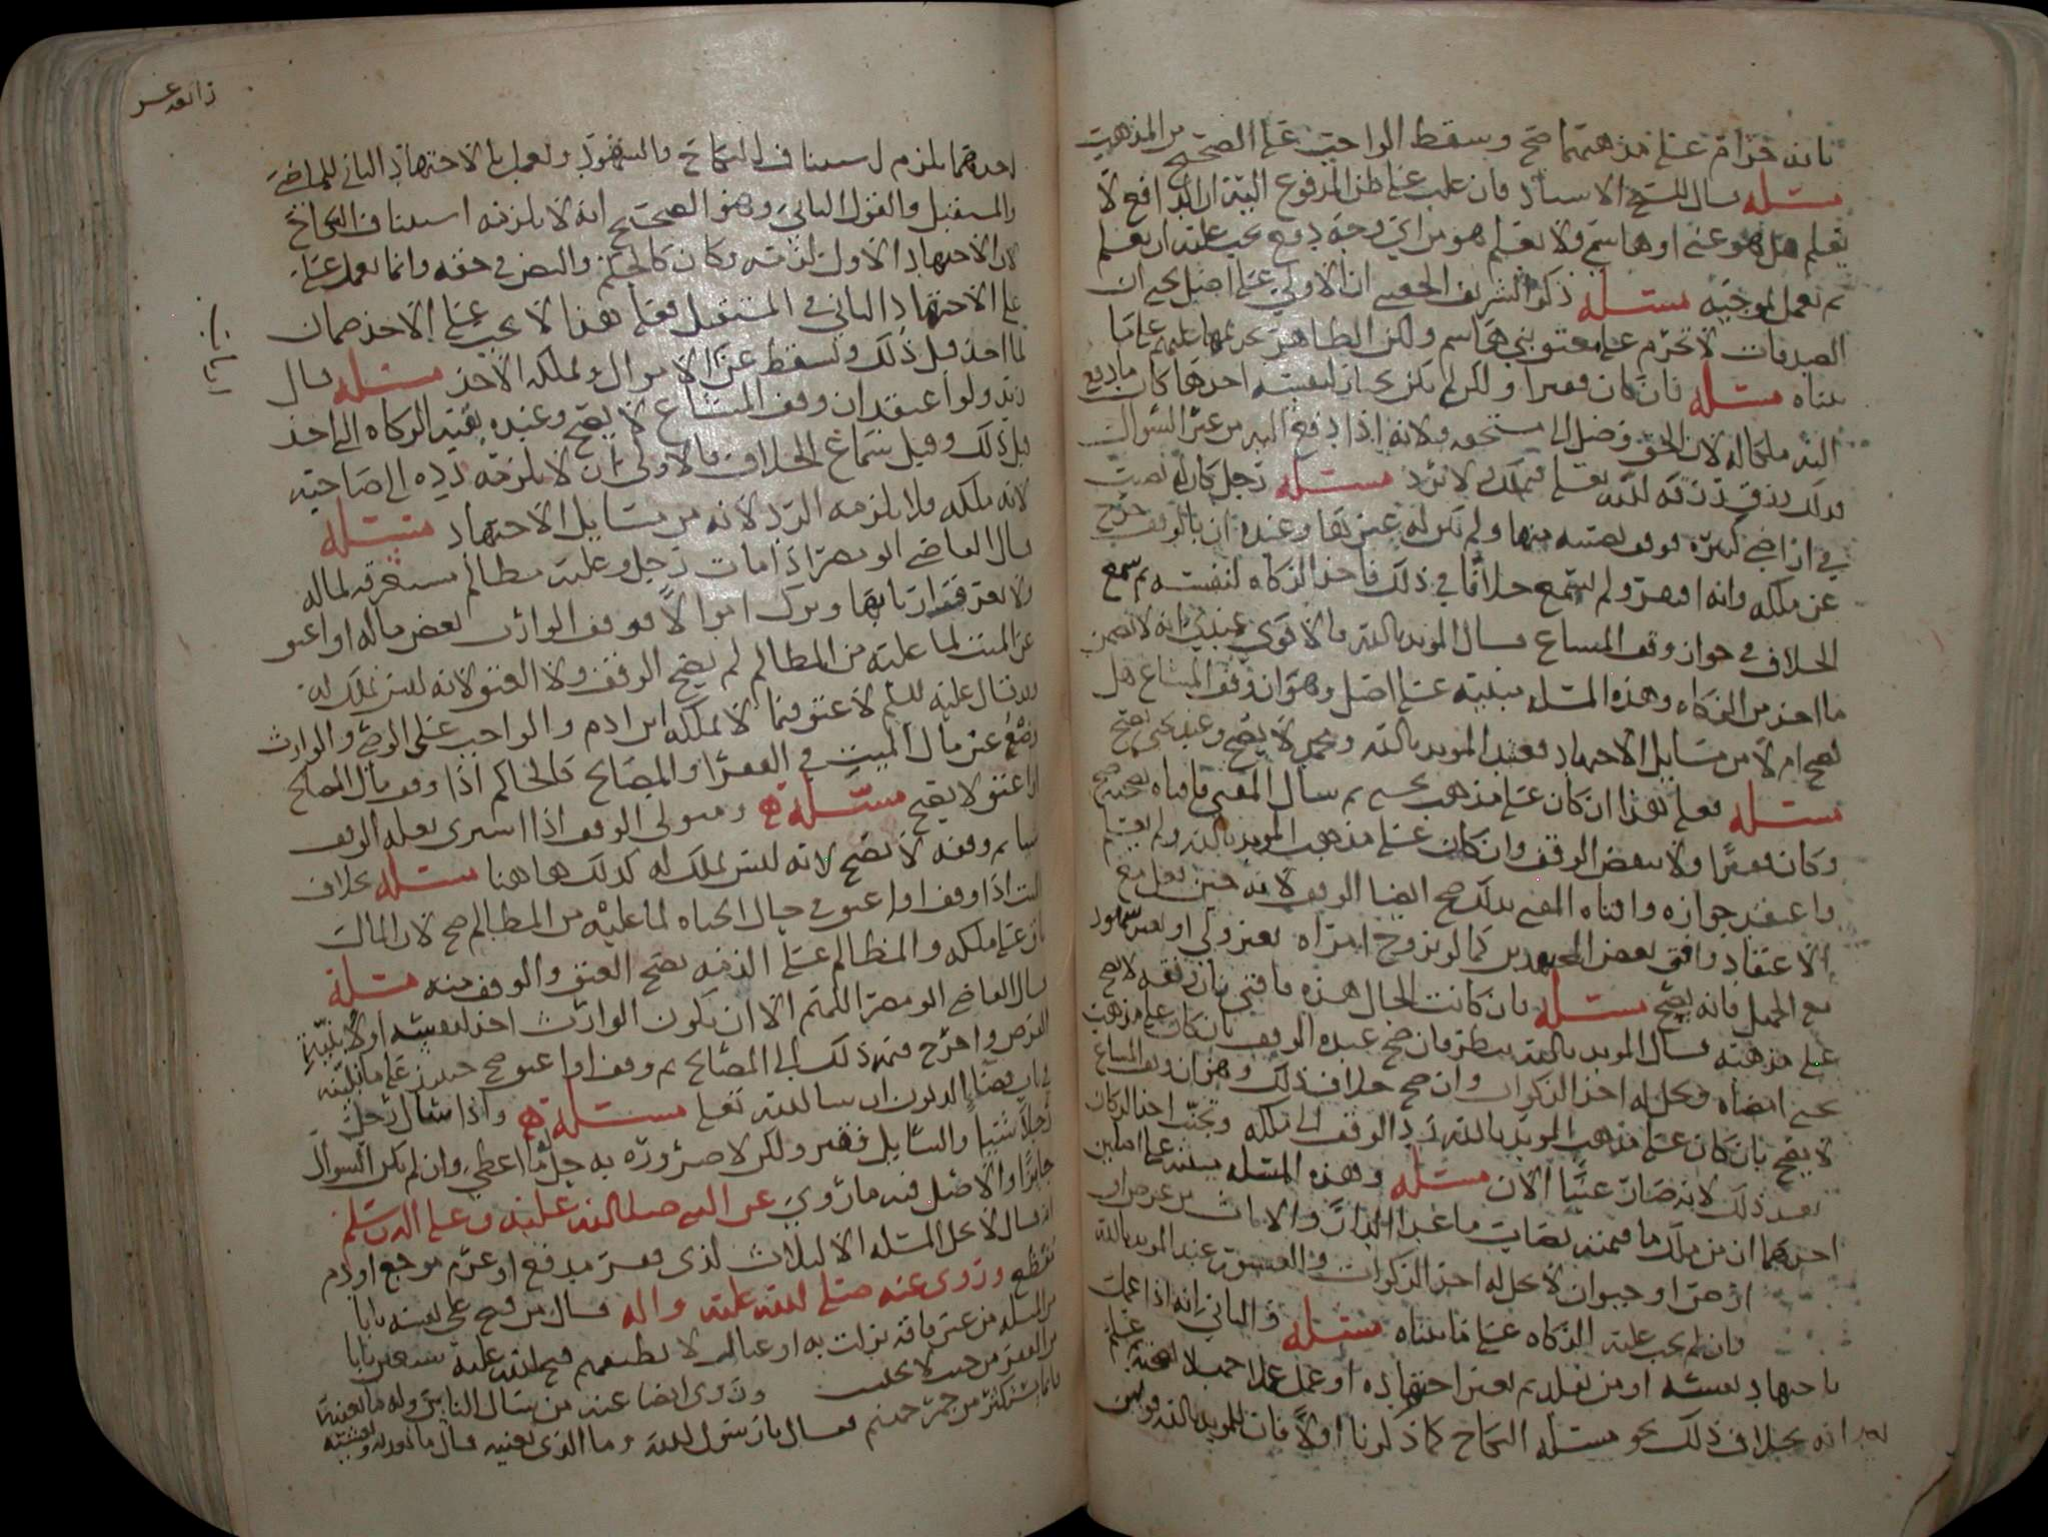 بانه حرام على مذهبهما صح وسقط الواجب على الصحيح من المذهب
مسئله قال الشيخ الاستاد فان غلب على ظن المدفوع اليه ان الدافع لا
يعلم هل هو غني او هاشمي ولا يعلم هو من اي وجه دفع يجب عليه ان يعلم
ثم يعمل بموجبه مسئله ذكر الشريف الحسني ان الاولى على اصل يحيى ان
الصدقات لا تحرم على معتق بني هاشم ولكن الظاهر تحريمها عليهم على ما
بيناه مسئله فان كان فقيرا ولكن لم يكن يجاز لنفسه احدها كان ما دفع
اليه ملكا له لان الحق وصل الى مستحقه ولانه اذا دفع اليه من غير السوال
فذلك رزق رزقه الله تعالى فيملك لا يرد مسئله رجل كان له نصيب
في اراضي كثيره فوقف نصيبه منها ولم يكن له غيرها وعنده ان بالوقف خرج
عن ملكه وانه افتقر ولم يسمع خلافا في ذلك فاخذ الزكاه لنفسه ثم سمع
الخلاف في جواز وقف المشاع قال المويد بالله فالاقوى عندي انه لا يضمن
ما اخذ من الزكاه وهذه المسئله مبنيه على اصل وهو ان وقف المشاع هل
يصح ام لا من مسايل الاجتهاد فعند المويد بالله ومحمد لا يصح وعند يحيى يصح
مسئله فعلى هذا ان كان على مذهب يحيى ثم سال المفتي فافتاه بصحته صح
وكان فقيرا ولا ينقض الوقف وان كان على مذهب المويد بالله ولم يعلم
واعتقد جوازه وافتاه المفتي بذلك صح ايضا الوقف لانه حين فعل مع
الاعتقاد وافق بعض المجتهدين كما لو تزوج امراه بغير ولي او بغير شهود
مع الجهل فانه يصح مسئله فان كانت الحال هذه فافتي بان وقفه لا يصح
على مذهبه قال المويد بالله ينظر فان صح عنده الوقف بان كان على مذهب
يحيى امضاه ويحل له اخذ الزكوات وان صح خلاف ذلك وهو ان وقف المشاع
لا يصح بان كان على مذهب المويد بالله رد الوقف الى ملكه وتجنب اخذ الزكاه
بعد ذلك لانه صار غنيا الان مسئله وهذه المسئله مبنيه على اصلين
احدهما ان من ملك ما قيمته نصاب ما عدا الدار والاثاث من عرض او
ارض او حيوان لا يحل له اخذ الزكوات عند المويد بالله
وان لم يجب عليه الزكاه على ما بيناه مسئله والثاني انه اذا عمل
باجتهاد نفسه او من تقليد ثم تغير اجتهاده او عمل عملا جهلا لصحته ثم علم
انه بخلاف ذلك نحو مسئله النكاح كما ذكرنا اولا فان للمويد بالله قولين
احدهما يلزم استيناف النكاح والشهود ويعمل بالاجتهاد الثاني للماضي
والمستقبل والقول الثاني وهو الصحيح انه لا يلزمه استيناف النكاح
لان الاجتهاد الاول لزمه وكان كالحكم والنص في حقه وانما يعمل على
على الاجتهاد الثاني في المستقبل فعلى هذا لا يجب على الاخذ ضمان
لما اخذ قبل ذلك ويسقط عن الاموال ويملكه الاخذ مسئله قال
زيد ولو اعتقد ان وقف المشاع لا يصح وعنده بقيه الزكاه التي اخذ
قبل ذلك وقبل سماع الخلاف فالاولى ان لا يلزمه رده الى صاحبه
لانه ملكه ولا يلزمه الرد لانه من مسايل الاجتهاد مسئله
قال القاضي ابو مضر اذا مات رجل وعليه مظالم مستغرقه لماله
ولا يعرف اربابها وترك اموالا فوقف الوارث بعض ماله او اعتق
عن الميت لما عليه من المظالم لم يصح الوقف ولا العتق لانه ليس يملك له
وقد قال عليه السلم لا عتق فيما لا يملكه ابن ادم والواجب على الوصي والوارث
وضع عين مال الميت في الفقرا والمصالح كالحاكم اذا وقف مال المصالح
او اعتق لا يصح مسئله ومتولى الوقف اذا اشترى بغله الوقف
شيا ثم وقفه لا يصح لانه ليس بملك له كذلك هاهنا مسئله بخلاف
الميت اذا وقف او اعتق في حال الحياه لما عليه من المظالم صح لان المال
باق على ملكه والمظالم على الذمه يصح العتق والوقف منه مسئله
قال القاضي ابو مضر اللهم الا ان يكون الوارث اخذ لنفسه اولا بنيه
القرض واخرج قيمه ذلك الى المصالح ثم وقف او اعتق صح حينئذ على ما نبينه
في باب قضا الديون ان شا الله تعالى مسئله واذا سال رجل
رجلا شيا والسايل فقير ولكن لا ضروره به حل ما اعطي وان لم يكن السوال
جايزا والاصل فيه ما روي عن النبي صلى الله عليه وعلى اله وسلم
انه قال لا تحل المسئله الا لثلاث لذي فقر مدقع او غرم موجع او دم
مفظع وروي عنه صلى الله عليه واله قال من فتح على نفسه بابا
من المسئله من غير فاقه نزلت به او عيال لا يطيقهم فتح الله عليه سبعين بابا
من الفقر من حيث لا يحتسب وروي ايضا عنه من سال الناس وله ما يغنيه
فانما يستكثر من جمر جهنم فقال يا رسول الله وما الذي يغنيه قال ما يغديه ويعشيه